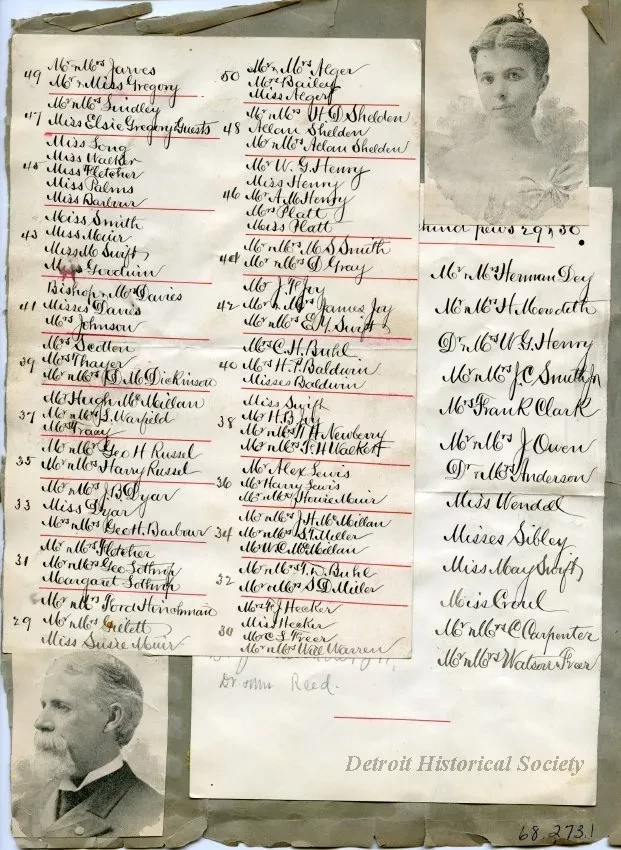 49 Mr & Mrs Jarves
Mr & Miss Gregory
Mr & Mrs Lindley
47 Miss Elsie Gregory Guests
Miss Long
Miss Walker
45 Miss Fletcher
Miss Palms
Miss Barbour
Miss Smith
43 Miss Muir
Miss M Swift
Miss Goodwin
Bishop & Mrs Davies
41 Misses Davis
Mrs Johnson
Mrs Scotten
39 Mrs Thayer
Mr & Mrs D. M. Dickinson
Mr Hugh McMillan
37 Mr & Mrs S. Warfield
Mrs Traw
Mr & Mrs Geo H Russel
35 Mr & Mrs Harry Russel
Mr & Mrs J. B. Dyar
33 Miss Dyar
Mr & Mrs Geo H. Barbour
Mr & Mrs Fletcher
31 Mr & Mrs Geo Lothrop
Margaret Lothrop
Mr & Mrs Ford Hinchman
29 Mr & Mrs
Miss Susie Muir
50 Mr & Mrs Alger
Mrs Bailey
Miss Alger
Mr & Mrs H. D Shelden
48 Allan Shelden
Mr & Mrs Allan Shelden
Mr W. G. Henry
Miss Henry
46 Mr A. M Henry
Mrs Platt
Miss Platt
Mr & Mrs M S Smith
44 Mr & Mrs D Gray
Mr J. F Joy
42 Mr & Mrs James Joy
Mr & Mrs E. Y. Swift
Mrs C. H. Buhl
40 Mrs H. P. Baldwin
Misses Baldwin
Miss Swift
38 Mr H.
Mr & Mrs T. H. Newberry
Mr & Mrs F. H Walker
Mr Alex Lewis
36 Mr Harry Lewis
Mr & Mrs Howie Muir
Mr & Mrs J. H. McMillan
34 Mr & Mrs S. T. Miller
Mr W. C. McMillan
Mr & Mrs T. D. Buhl
32 Mr & Mrs S D Miller
Mr F. J Hecker
Miss Hecker
30 Mr C. L Freer
Mr & Mrs Will Warren
behind pews 29 & 30.
Mr & Mrs Herman Dey
Mr & Mrs H. Meredith
Dr & Mrs W. G. Henry
Mr & Mrs J. C. Smith Jr
Mrs Frank Clark
Mr & Mrs J Owen
Dr & Mrs Anderson
Miss Wendel
Misses Sibley
Miss May Swift
Miss Croul
Mr & Mrs C Carpenter
Mr & Mrs Watson Freer
Dr John Reed.
Detroit Historical Society
68.273.1